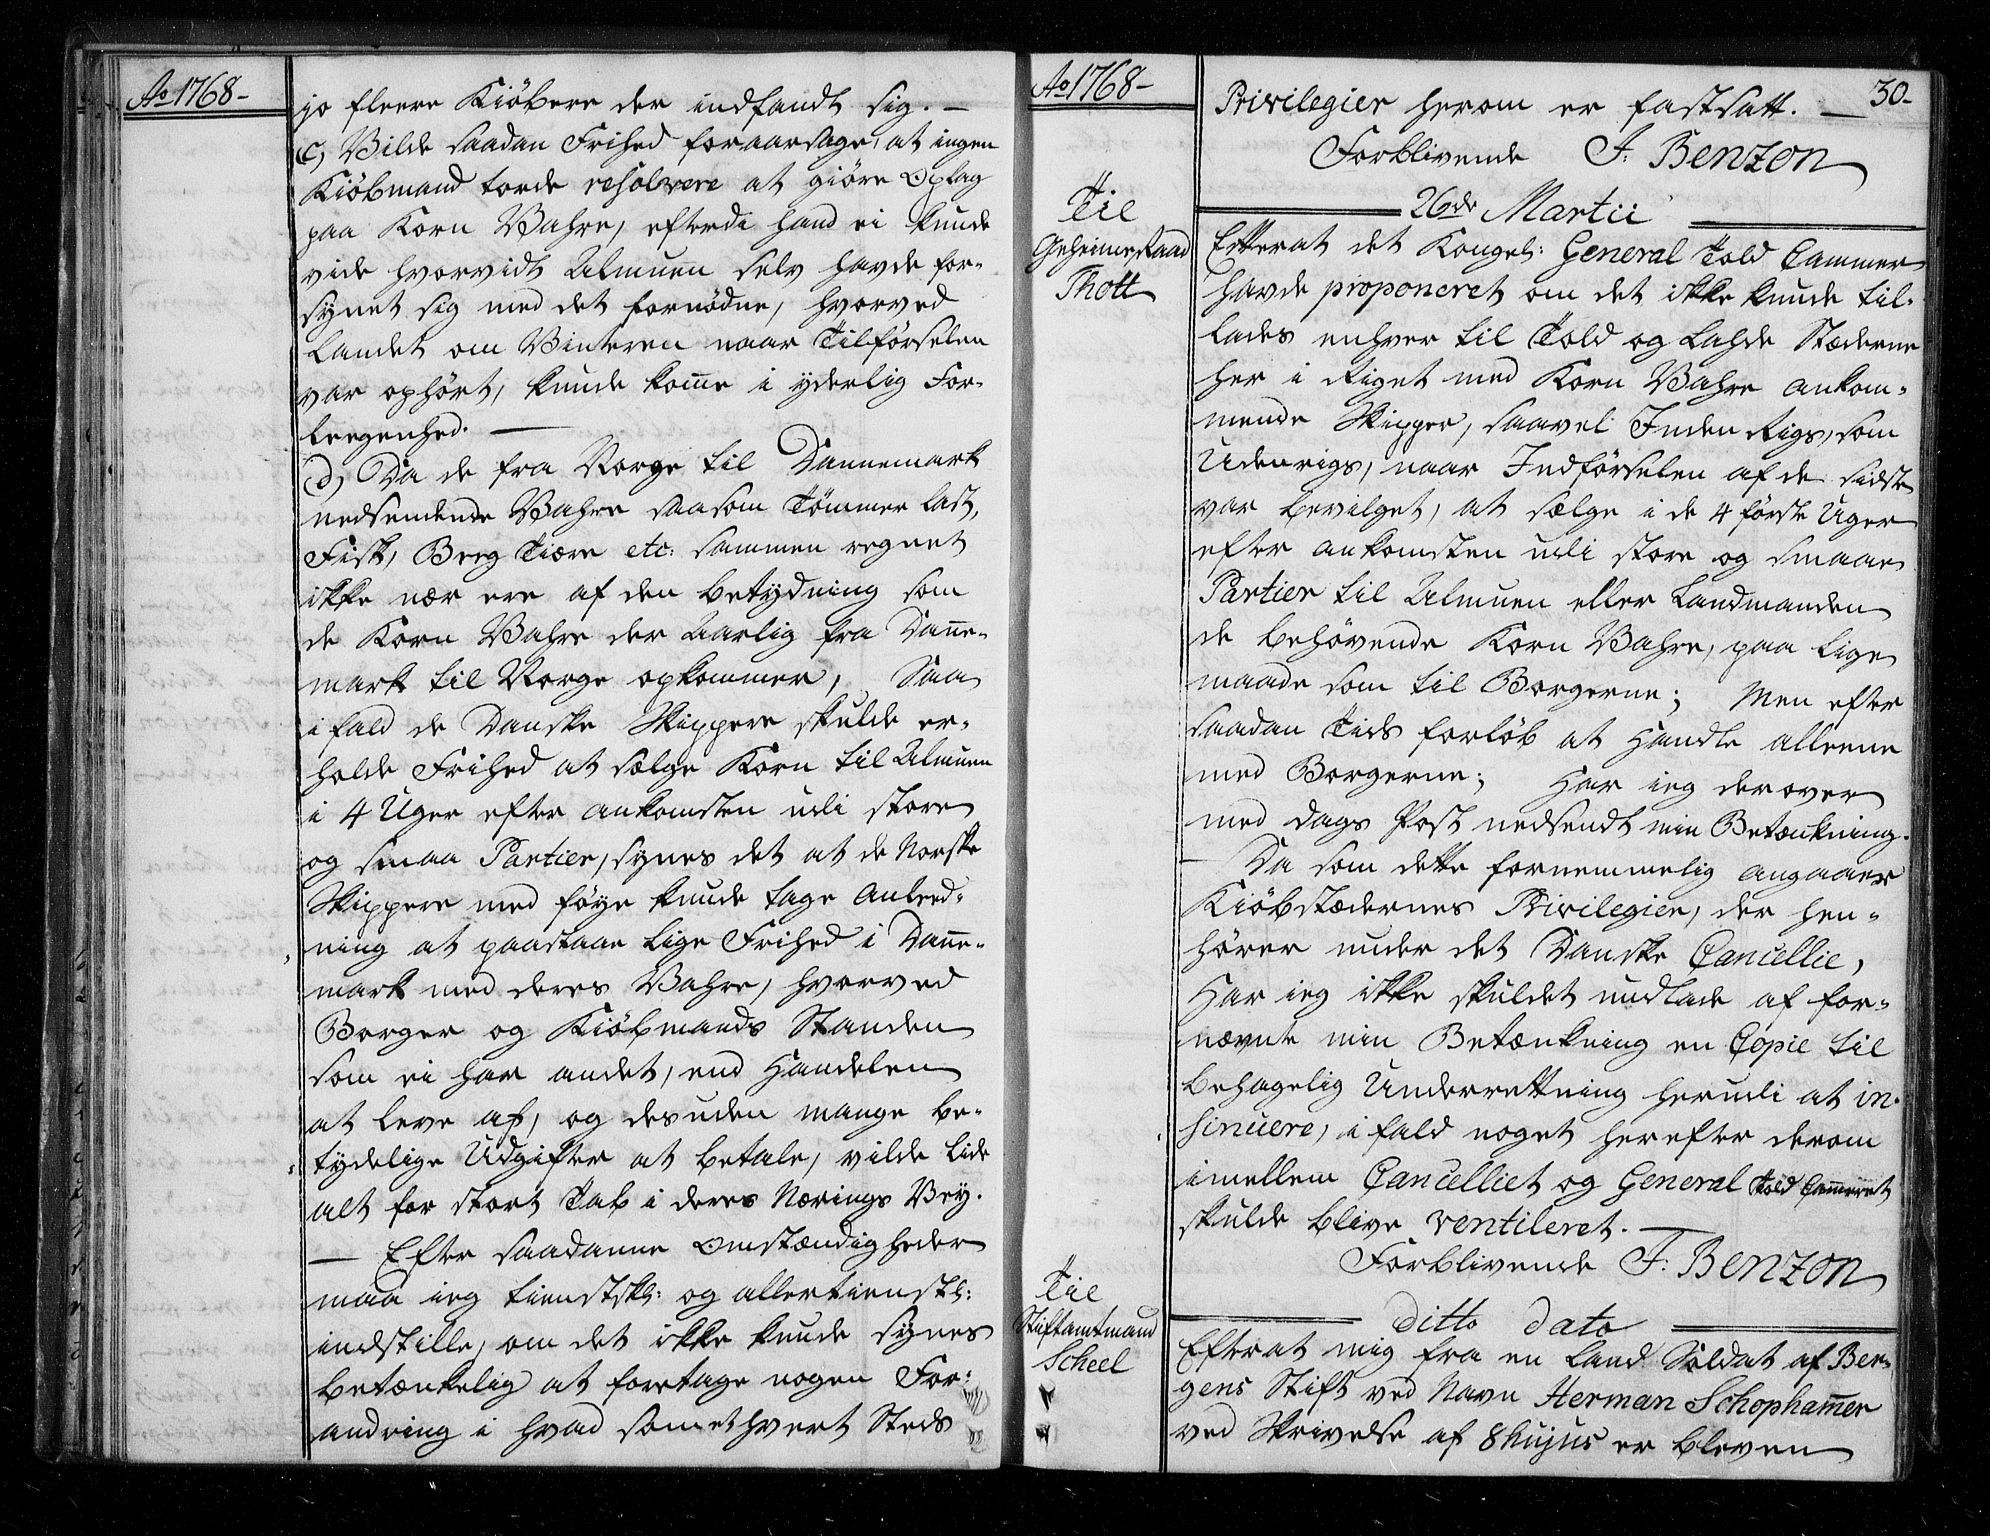 Ao 1768-
jo fleere Kiöbere der indfandt sig. —
c, Vilde saadan Frihed foraarsage, at ingen
Kiöbmand torde resolvere at giöre Oplag
paa Korn Vahre, efterdi hand ei kunde
vide hvorvidt Almuen selv havde for-
synet sig med det fornödne, hvorved
Landet om Vinteren naar Tilförselen
var ophört, kunde kom̅e i yderlig For-
leegenhed. —
d, Da de fra Norge til Dannemark
nedsendende Vahre saasom Tömmer Last,
Fisk, Beeg Tiære etc: sammen regnet
ikke nær ere af den betydning som
de Korn Vahre der Aarlig fra Dan̅e-
mark til Norge opkommer, Saa
ifald de Danske Skippere skulde er-
holde Frihed at sælge Korn til Almuen
i 4 Uger efter ankomsten udi store
og smaa Partier, synes det at de Norske
Skippere med föye kunde tage Anleed-
ning at paastaae lige Frihed i Dan̅e-
mark med deres Vahre, hvorved
Borger og Kiöbmands Standen
som ei har andet, end Handelen
at leve af, og desuden mange be-
tydelige Udgifter at betale, vilde lide
alt for stort Tab i deres Nærings Vey.
— Efter saadanne Omstændigheder
maa ieg tienstskl: og allertienstl:
indstille, om det ikke kunde synes
betænkelig at foretage nogen For-
andring i hvad som ethvert Steds
Ao 1768-
30-
Privilegier herom er fastsatt. —
Forblivende F. Benzon
26de Martii
Til
Geheimeraad
Thott
Efterat det Kongel: General Told Cammer
havde proponeret om det ikke kunde til-
lades enhver til Told og Lahde Stæderne
her i Riget med Korn Vahre ankom-
mende Skipper, saavel Inden Rigs, som
Udenrigs, naar Indförselen af de sidste
var bevilget, at sælge i de 4 förste Uger
efter ankomsten udi store og smaae
Partier til Almuen eller Landmanden
de behövende Korn Vahre, paa lige
maade som til Borgerne; Men efter
saadan Tids forlöb at Handle alleene
med Borgerne; Har ieg derover
med Dags Post nedsendt min Betænkning.
— Da som dette fornemmelig angaaer
Kiöbstædernes Privilegier, der hen-
hörer under det Danske Cancellie,
Har ieg ikke skuldet undlade af for-
nævnte min Betænkning en Copie til
behagelig Underrettning herudi at in-
sinuere, ifald noget herefter derom
imellem Cancelliet og General Told Cam̅eret
skulde blive ventileret. —
Forblivende F. Benzon
ditto dato
Til
Stiftamtmand
Scheel
Efterat mig fra en Land Soldat af Ber-
gens Stift ved Navn Herman Schopham̅er
ved Skrivelse af 8 hujus er bleven